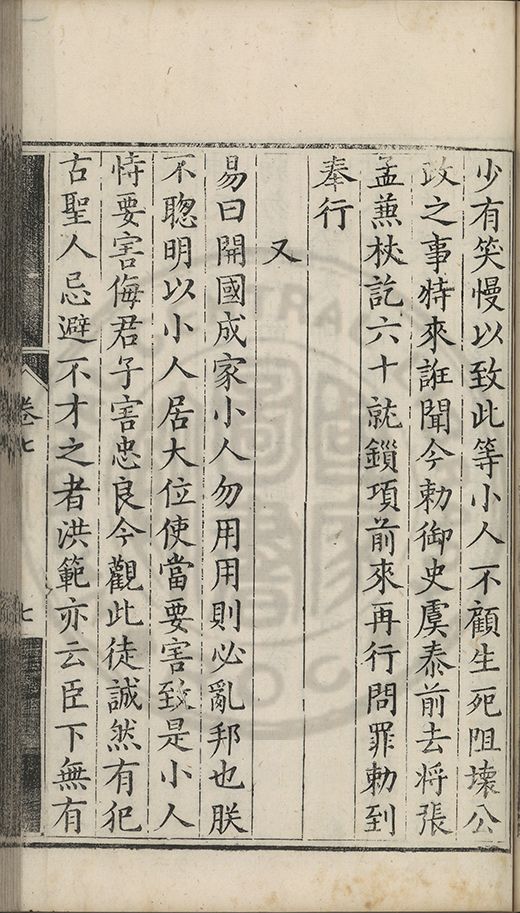 少有笑慢以致此等小人不顧生死阻壞公
政之事特來誑聞今勅御史虞泰前去將張
孟蕪杖訖六十就鎖項前來再行問罪勅到
奉行
又
易曰開國成家小人勿用用則必亂邦也朕
不聦明以小人居大位使當要害致是小人
恃要害侮君子害忠良今觀此徒誠然有犯
古聖人忌避不才之者洪範亦云臣下無有
卷七
七